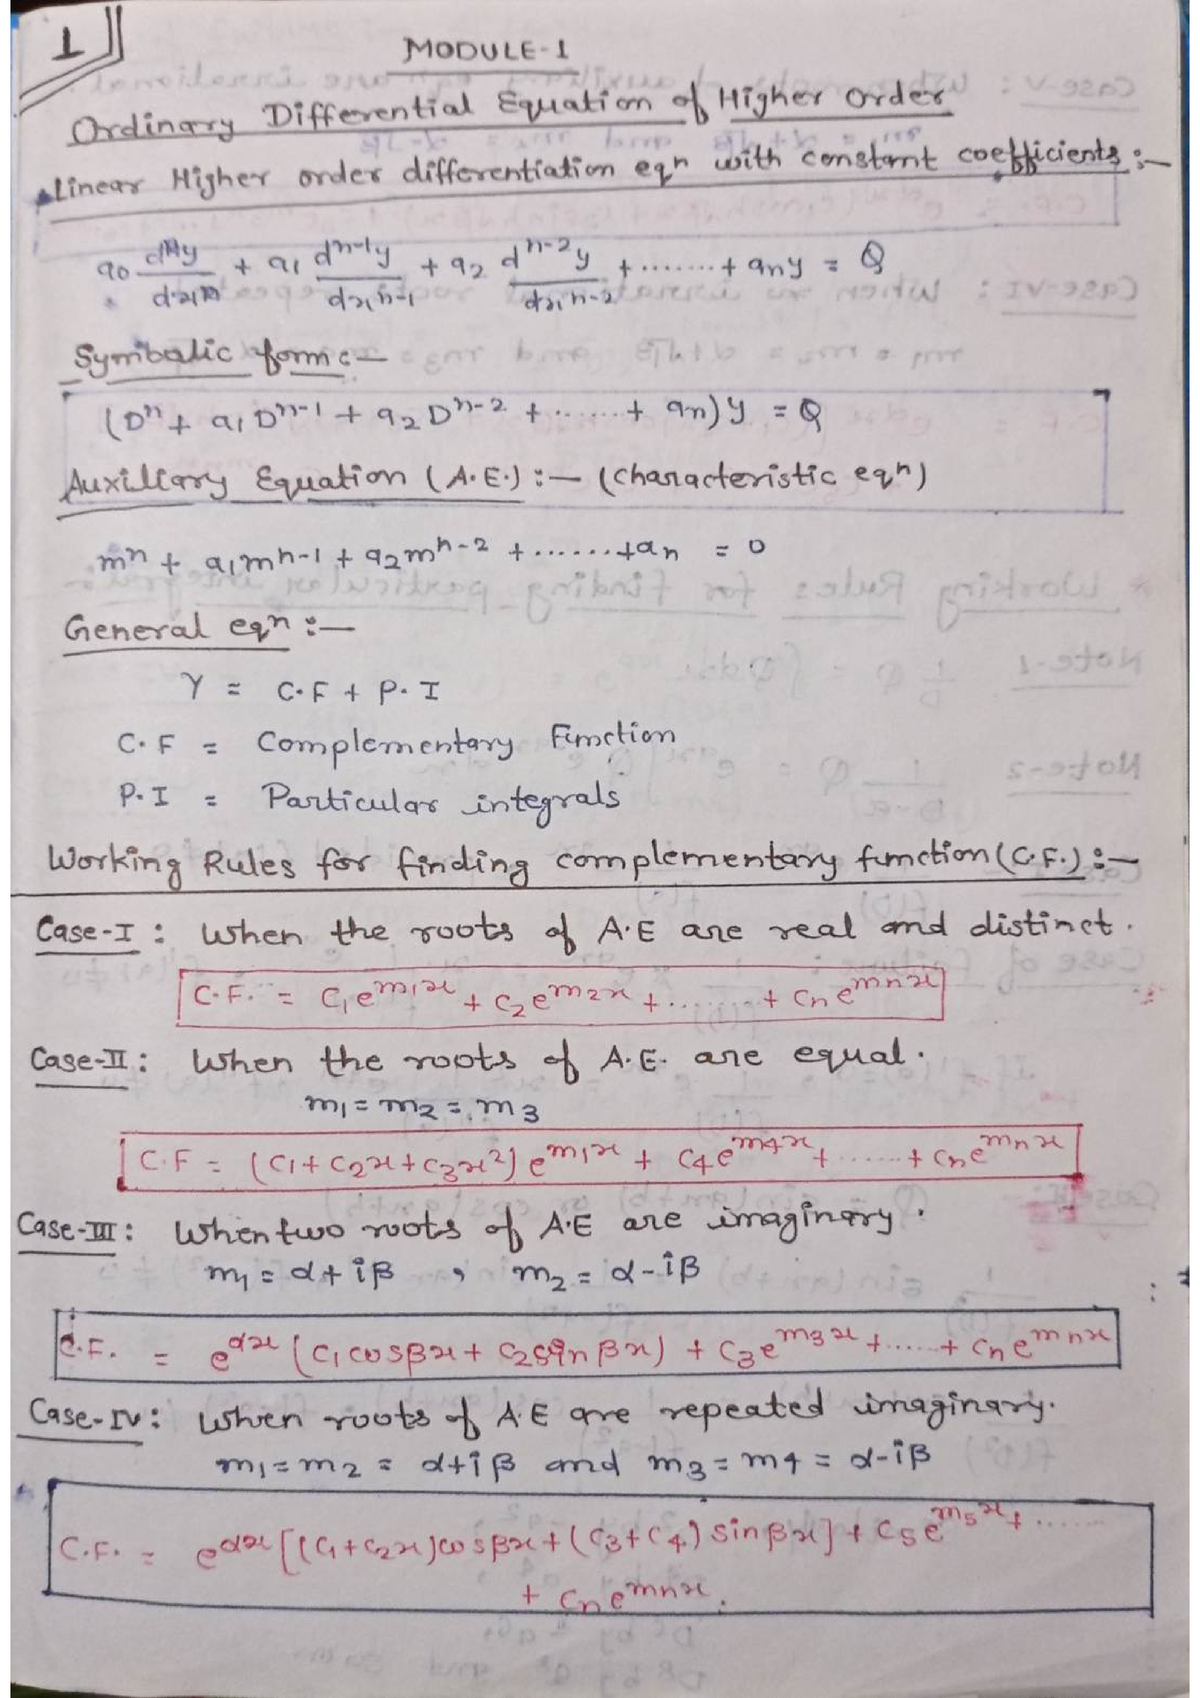 1
MODULE-1
Ordinary Differential Equation of Higher Order
Linear Higher order differentiation eqⁿ with constant coefficients :—
a₀ dⁿy/dxⁿ + a₁ dⁿ⁻¹y/dxⁿ⁻¹ + a₂ dⁿ⁻²y/dxⁿ⁻² + ....... + aₙy = Q
Symbolic form :—
(Dⁿ + a₁Dⁿ⁻¹ + a₂Dⁿ⁻² + ...... + aₙ)y = Q
Auxiliary Equation (A.E.) :— (characteristic eqⁿ)
mⁿ + a₁mⁿ⁻¹ + a₂mⁿ⁻² + ...... + aₙ = 0
General eqⁿ :—
Y = C.F + P.I
C.F = Complementary Function
P.I = Particular integrals
Working Rules for finding complementary function (C.F.) :—
Case-I : When the roots of A.E are real and distinct.
C.F. = C₁e^m₁x + C₂e^m₂x + ........ + Cₙe^mₙx
Case-II : When the roots of A.E. are equal.
m₁ = m₂ = m₃
C.F = (C₁ + C₂x + C₃x²) e^m₁x + C₄e^m₄x + ...... + Cₙe^mₙx
Case-III : When two roots of A.E are imaginary.
m₁ = α + iβ , m₂ = α - iβ
C.F. = e^αx (C₁ cosβx + C₂ sin βx) + C₃e^m₃x + ...... + Cₙe^mₙx
Case-IV : When roots of A.E are repeated imaginary.
m₁ = m₂ = α + iβ and m₃ = m₄ = α - iβ
C.F. = e^αx [(C₁ + C₂x) cosβx + (C₃ + C₄) sin βx] + C₅e^m₅x + .......
+ Cₙe^mₙx.